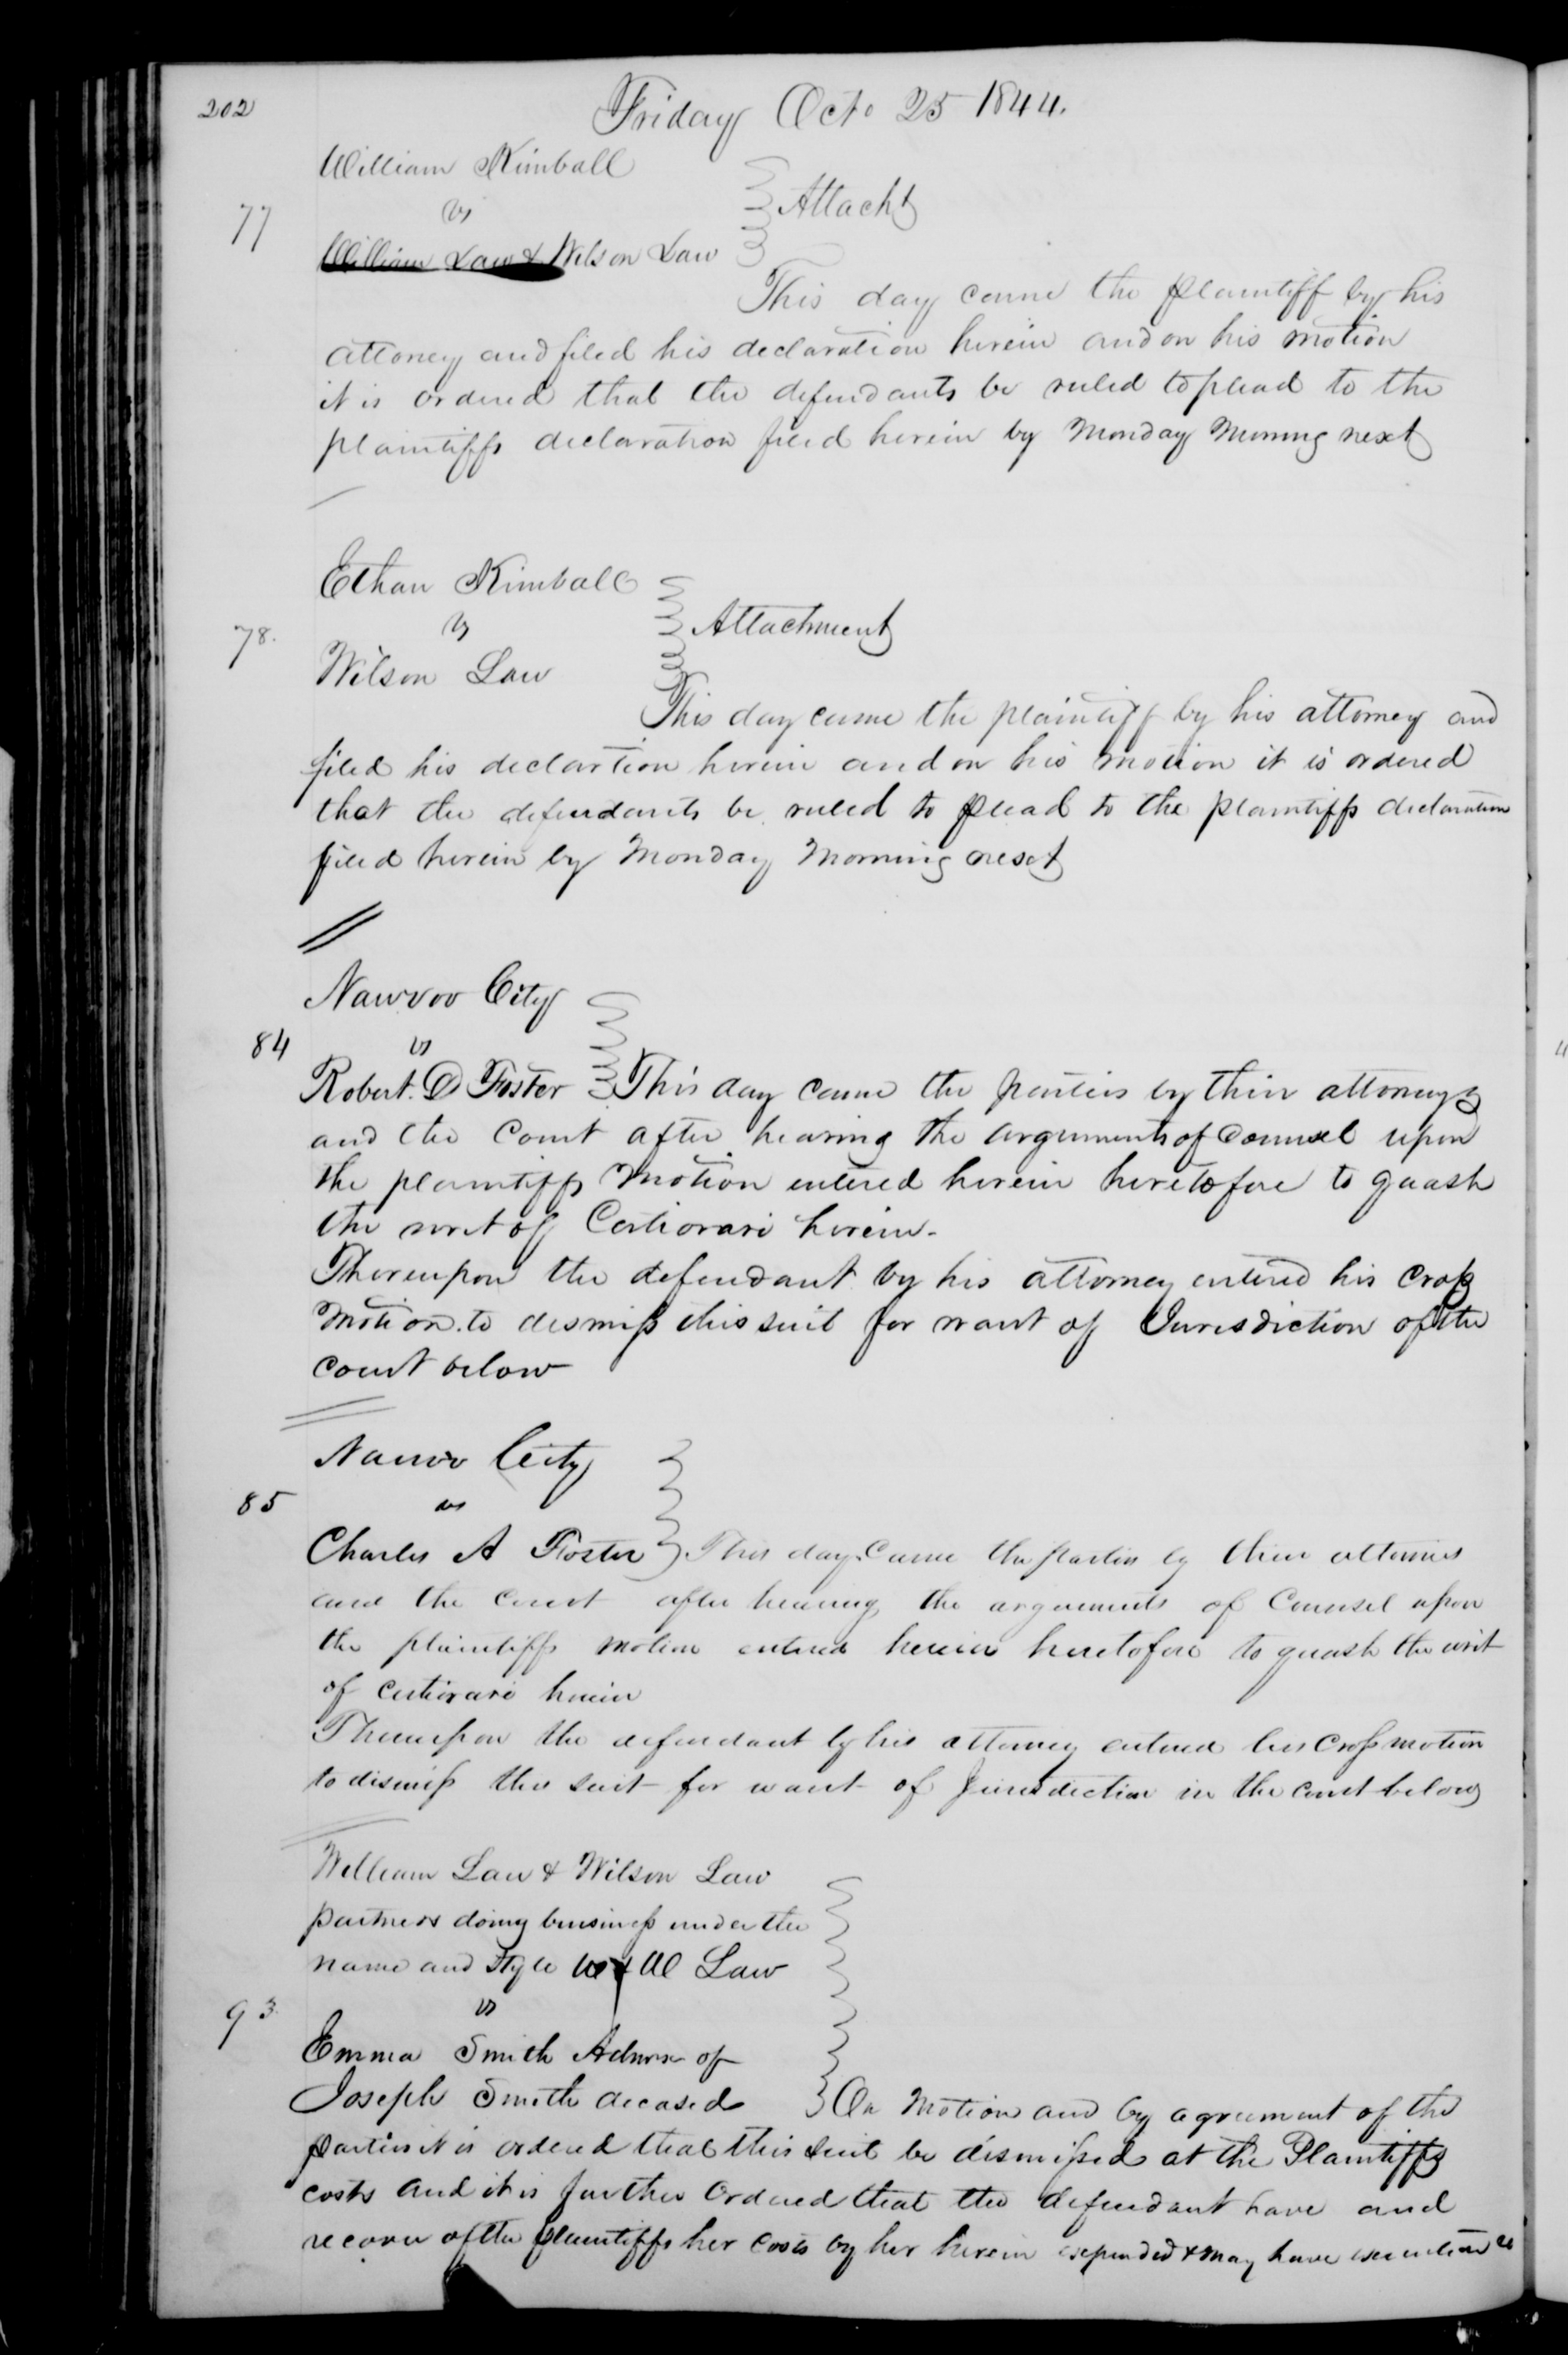 202
Friday Octo 25 1844.
William Kimball
vs
Attacht
77
William Law & Wilson Law
This day came the plaintiff by his
attorney and filed his declaration herein and on his motion
it is ordered that the defendants be ruled to plead to the
plaintiffs declaration filed herein by Monday Morning next
Ethan Kimball
vs
Attachment
78.
Wilson Law
This day came the plaintiff by his attorney and
filed his declartion herein and on his motion it is ordered
that the defendants be ruled to plead to the plaintiffs declaration
filed herein by Monday Morning next
Nauvoo City
84
vs
Robert. D Foster This day came the parties by their attorneys
and the Court after hearing the arguments of Counsel upon
the plaintiffs Motion entered herein heretofore to quash
the writ of Certiorari herein.
Thereupon the defendant by his attorney entered his Cross
Motion to dismiss this suit for want of Jurisdiction of the
court below
Nauvoo City
85
vs
Charles A Foster This day Came the parties by their attornies
and the court after hearing the arguments of Counsel upon
the plaintiffs motion entered herein heretofore to quash the writ
of certiorari herein
Thereupon the defendant by his attorney entered his Cross motion
to dismiss this suit for want of Jurisdiction in the court below
William Law & Wilson Law
partners doing business under the
name and style W & W Law
93.
vs
Emma Smith Admrx of
Joseph Smith decased On Motion and by agreement of the
parties it is ordered that this suit be dismissed at the Plaintiffs
costs and it is further Ordered that the defendant have and
recover of the plaintiffs her costs by her herein expended & may have execution &c